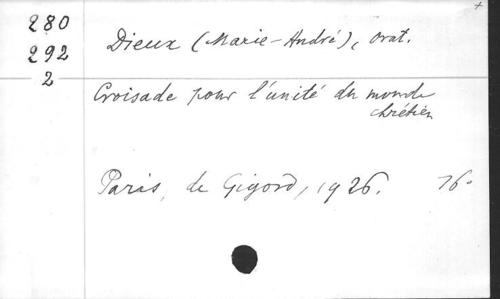 280
292
2
Dieux (Marie-André), orat.
Croisade pour l'unité du monde
chrétien
Paris, de Gigord, 1926. 16°